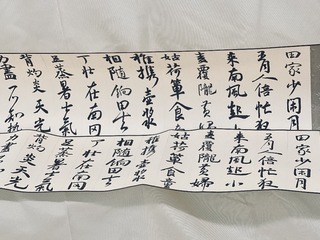 田家少閑月
五月人倍忙夜
来南風起小
麦覆隴黃婦
姑荷簞食童
稚携壺漿
相随餉田去
丁壮在南冈
足蒸暑土氣
背灼炎天光
力盡不知熱
田家少閑月
五月人倍忙夜
来南風起小
麦覆隴黃婦
姑荷簞食童
稚携壺漿
相随餉田去
丁壮在南冈
足蒸暑土氣
背灼炎天光
力盡不知